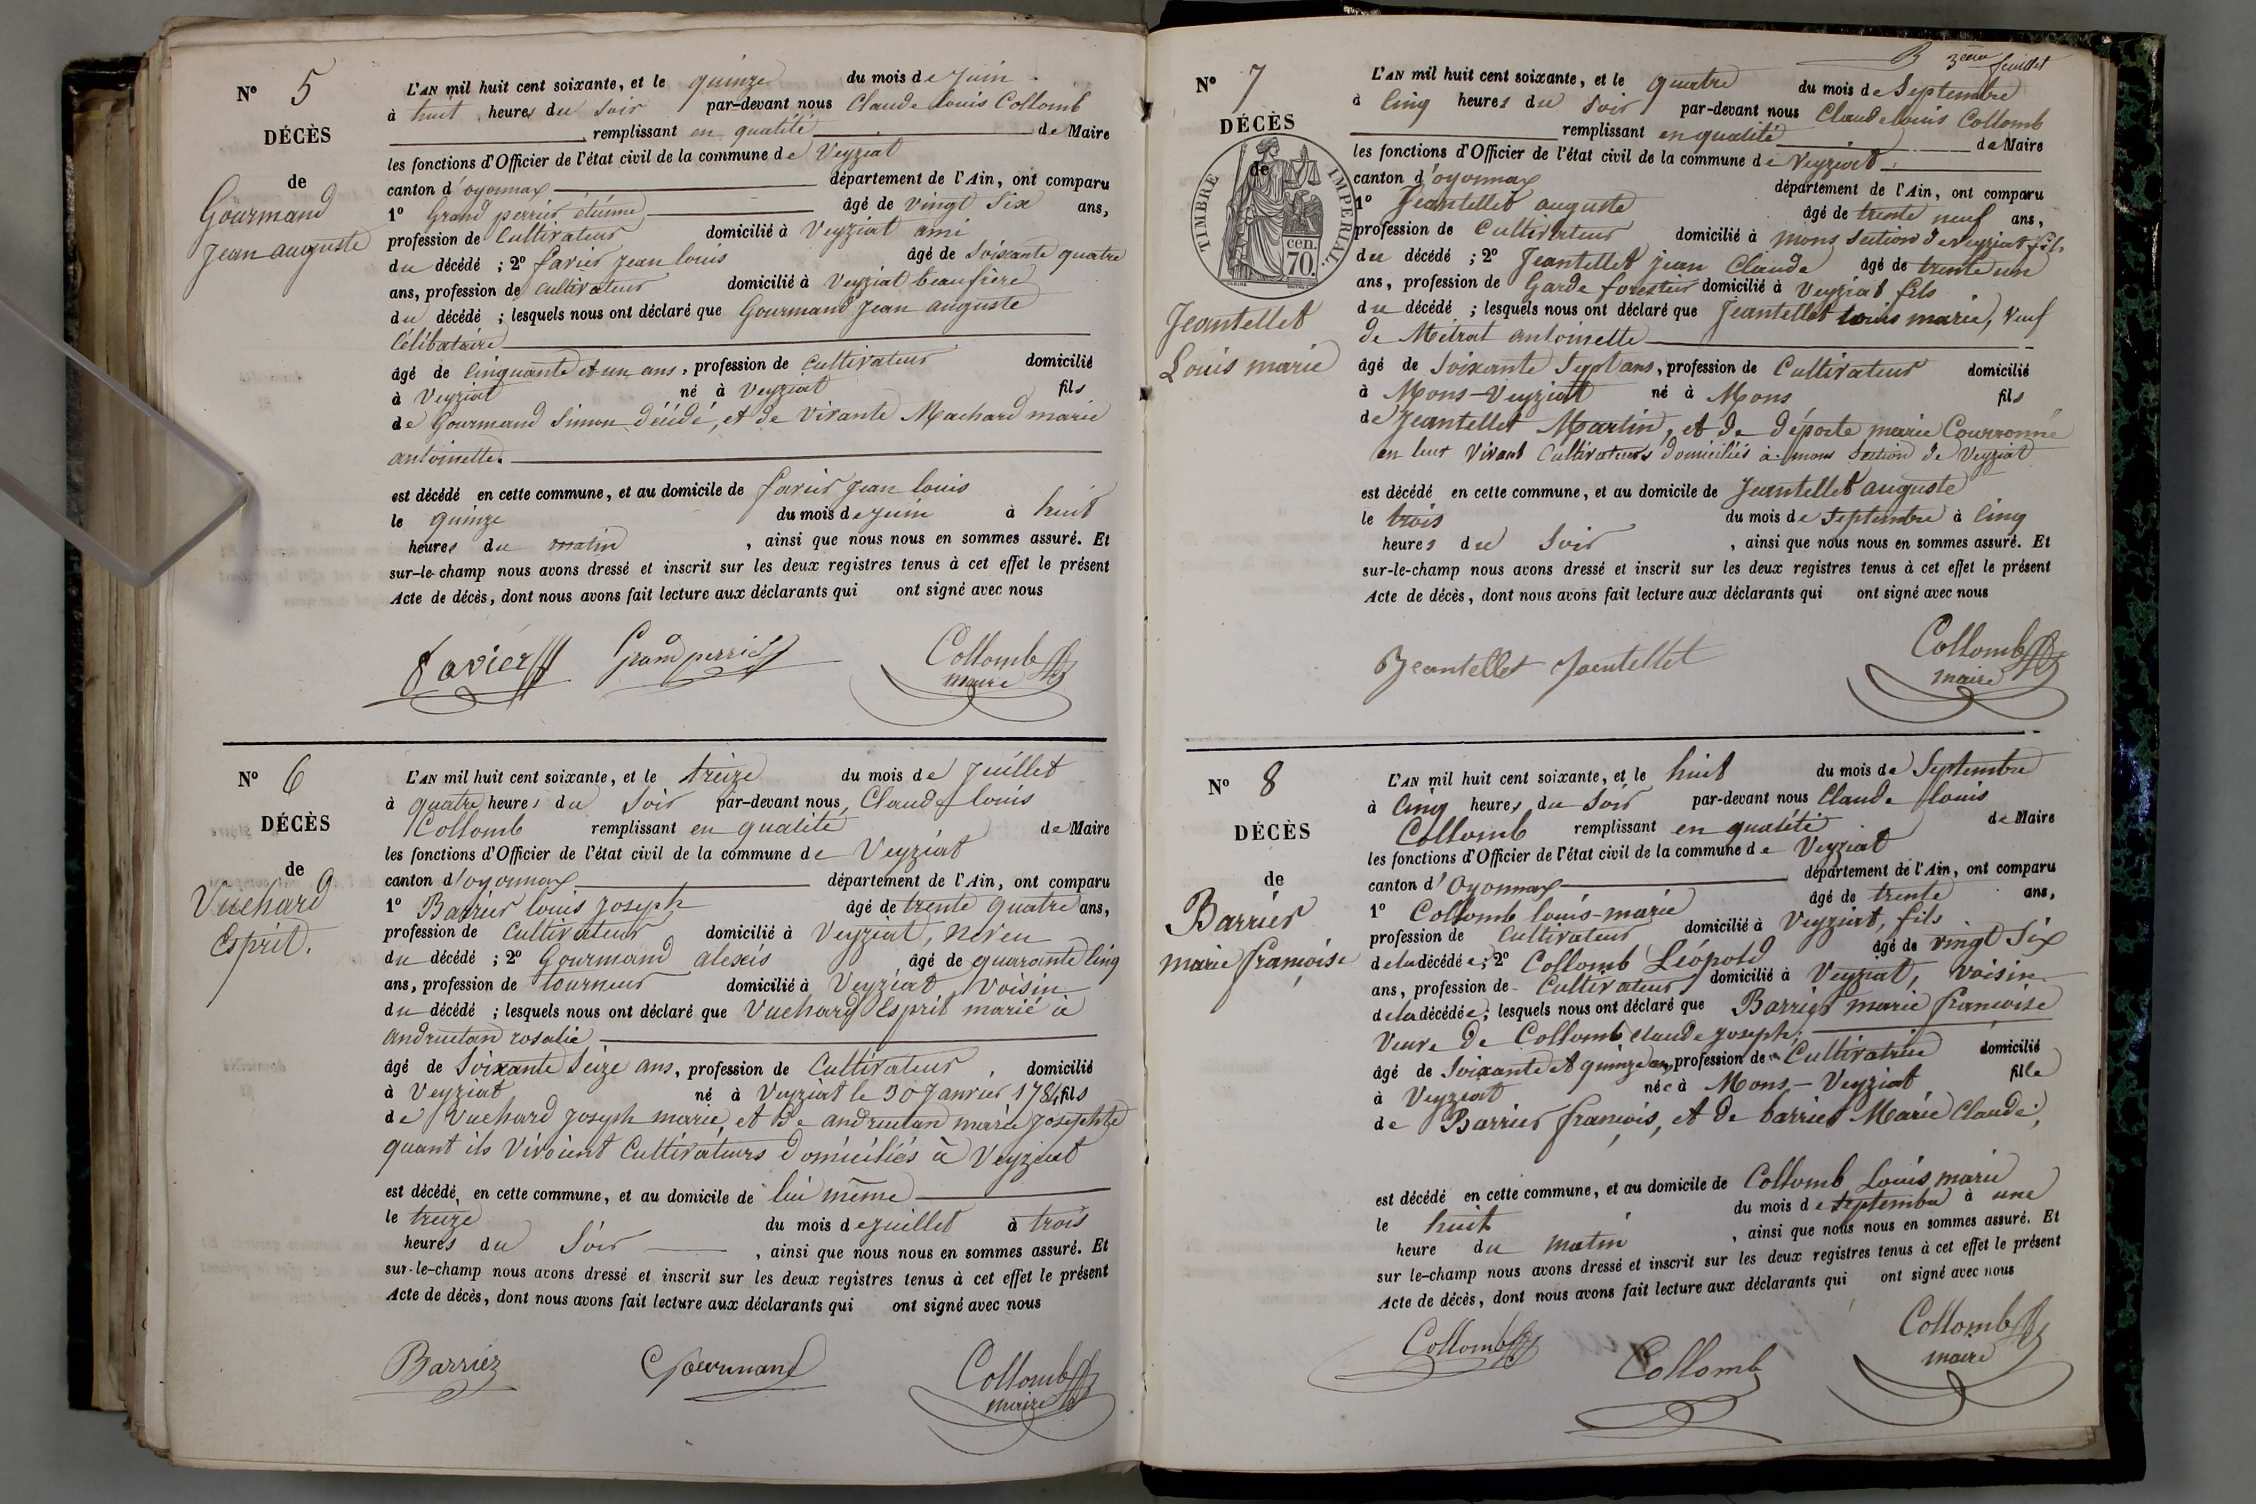 N° 5
DÉCÈS
de
Gourmand
Jean auguste
L'AN mil huit cent soixante, et le quinze du mois de Juin
à huit heures du Soir par-devant nous Claude Louis Collomb
remplissant en qualité de Maire
les fonctions d'Officier de l'état civil de la commune de Veyziat
canton d'oyonnax département de l'Ain, ont comparu
1° Grand perrier étiénne âgé de vingt Six ans,
profession de Cultivateur domicilié à Veyziat ami
du décédé ; 2° favier Jean louis âgé de Soixante quatre
ans, profession de Cultivateur domicilié à Veyziat beaufrère
du décédé ; lesquels nous ont déclaré que Gourmand Jean auguste
Célibataire
âgé de Cinquante et un ans, profession de Cultivateur domicilié
à Veyziat né à Veyziat fils
de Gourmand Simon décédé, et de vivante Machard marie
antoinette.
est décédé en cette commune, et au domicile de favier Jean louis
le quinze du mois de Juin à huit
heures du matin, ainsi que nous nous en sommes assuré. Et
sur-le-champ nous avons dressé et inscrit sur les deux registres tenus à cet effet le présent
Acte de décès, dont nous avons fait lecture aux déclarants qui ont signé avec nous
favier Grandperrier Collomb
maire
N° 6
DÉCÈS
de
Vuchard
Esprit.
L'AN mil huit cent soixante, et le treize du mois de Juillet
à quatre heures du Soir par-devant nous Claude louis
Collomb remplissant en qualité de Maire
les fonctions d'Officier de l'état civil de la commune de Veyziat
canton d'oyonnax département de l'Ain, ont comparu
1° Barrier louis joseph âgé de trente quatre ans,
profession de Cultivateur domicilié à Veyziat, neveu
du décédé ; 2° Gourmand alexis âgé de quarante Cinq
ans, profession de tourneur domicilié à Veyziat, voisin
du décédé ; lesquels nous ont déclaré que Vuchard Esprit marié à
andruetan rosalie
âgé de Soixante Seize ans, profession de Cultivateur domicilié
à Veyziat né à Veyziat le 30 Janvier 1784 fils
de Vuchard joseph marie, et de andruetan marie josephte
quant ils vivoient Cultivateurs domiciliés à Veyziat
est décédé en cette commune, et au domicile de lui même
le treize du mois de Juillet à trois
heures du Soir, ainsi que nous nous en sommes assuré. Et
sur-le-champ nous avons dressé et inscrit sur les deux registres tenus à cet effet le présent
Acte de décès, dont nous avons fait lecture aux déclarants qui ont signé avec nous
Barriez Gourmand Collomb
maire
3eme feuillet
N° 7
DÉCÈS
de
TIMBRE IMPÉRIAL
cen.
70.
Jeantellet
Louis marie
L'AN mil huit cent soixante, et le quatre du mois de Septembre
à Cinq heures du Soir par-devant nous Claude louis Collomb
remplissant en qualité de Maire
les fonctions d'Officier de l'état civil de la commune de Veyziat
canton d'oyonnax département de l'Ain, ont comparu
1° Jeantellet auguste âgé de trente neuf ans,
profession de Cultivateur domicilié à mons section de veyziat fils
du décédé ; 2° Jeantellet jean Claude âgé de trente un
ans, profession de Garde forestier domicilié à Veyziat fils
du décédé ; lesquels nous ont déclaré que Jeantellet louis marie, veuf
de Métrat antoinette
âgé de Soixante Sept ans, profession de Cultivateur domicilié
à Mons-Veyziat né à Mons fils
de Jeantellet Martin, et de déporte marie Couronné
en leur vivant Cultivateurs domiciliés à mons section de Veyziat
est décédé en cette commune, et au domicile de Jeantellet auguste
le trois du mois de Septembre à Cinq
heures du Soir, ainsi que nous nous en sommes assuré. Et
sur-le-champ nous avons dressé et inscrit sur les deux registres tenus à cet effet le présent
Acte de décès, dont nous avons fait lecture aux déclarants qui ont signé avec nous
Jeantellet Jeantellet Collomb
maire
N° 8
DÉCÈS
de
Barrier
marie françoise
L'AN mil huit cent soixante, et le huit du mois de Septembre
à Cinq heures du Soir par-devant nous Claude louis
Collomb remplissant en qualité de Maire
les fonctions d'Officier de l'état civil de la commune de Veyziat
canton d'Oyonnax département de l'Ain, ont comparu
1° Collomb louis-marie âgé de trente ans,
profession de Cultivateur domicilié à Veyziat, fils
de la décédée ; 2° Collomb Léopold âgé de vingt Six
ans, profession de Cultivateur domicilié à Veyziat, voisin
de la décédée ; lesquels nous ont déclaré que Barrier marie françoise
veuve de Collomb Claude joseph.
âgé de Soixante et quinze ans, profession de Cultivatrice domicilié
à Veyziat née à Mons-Veyziat fille
de Barrier françois, et de barrier Marie Claude,
est décédé en cette commune, et au domicile de Collomb Louis marie
le huit du mois de Septembre à une
heure du matin, ainsi que nous nous en sommes assuré. Et
sur le-champ nous avons dressé et inscrit sur les deux registres tenus à cet effet le présent
Acte de décès, dont nous avons fait lecture aux déclarants qui ont signé avec nous
Collomb Collomb Collomb
maire